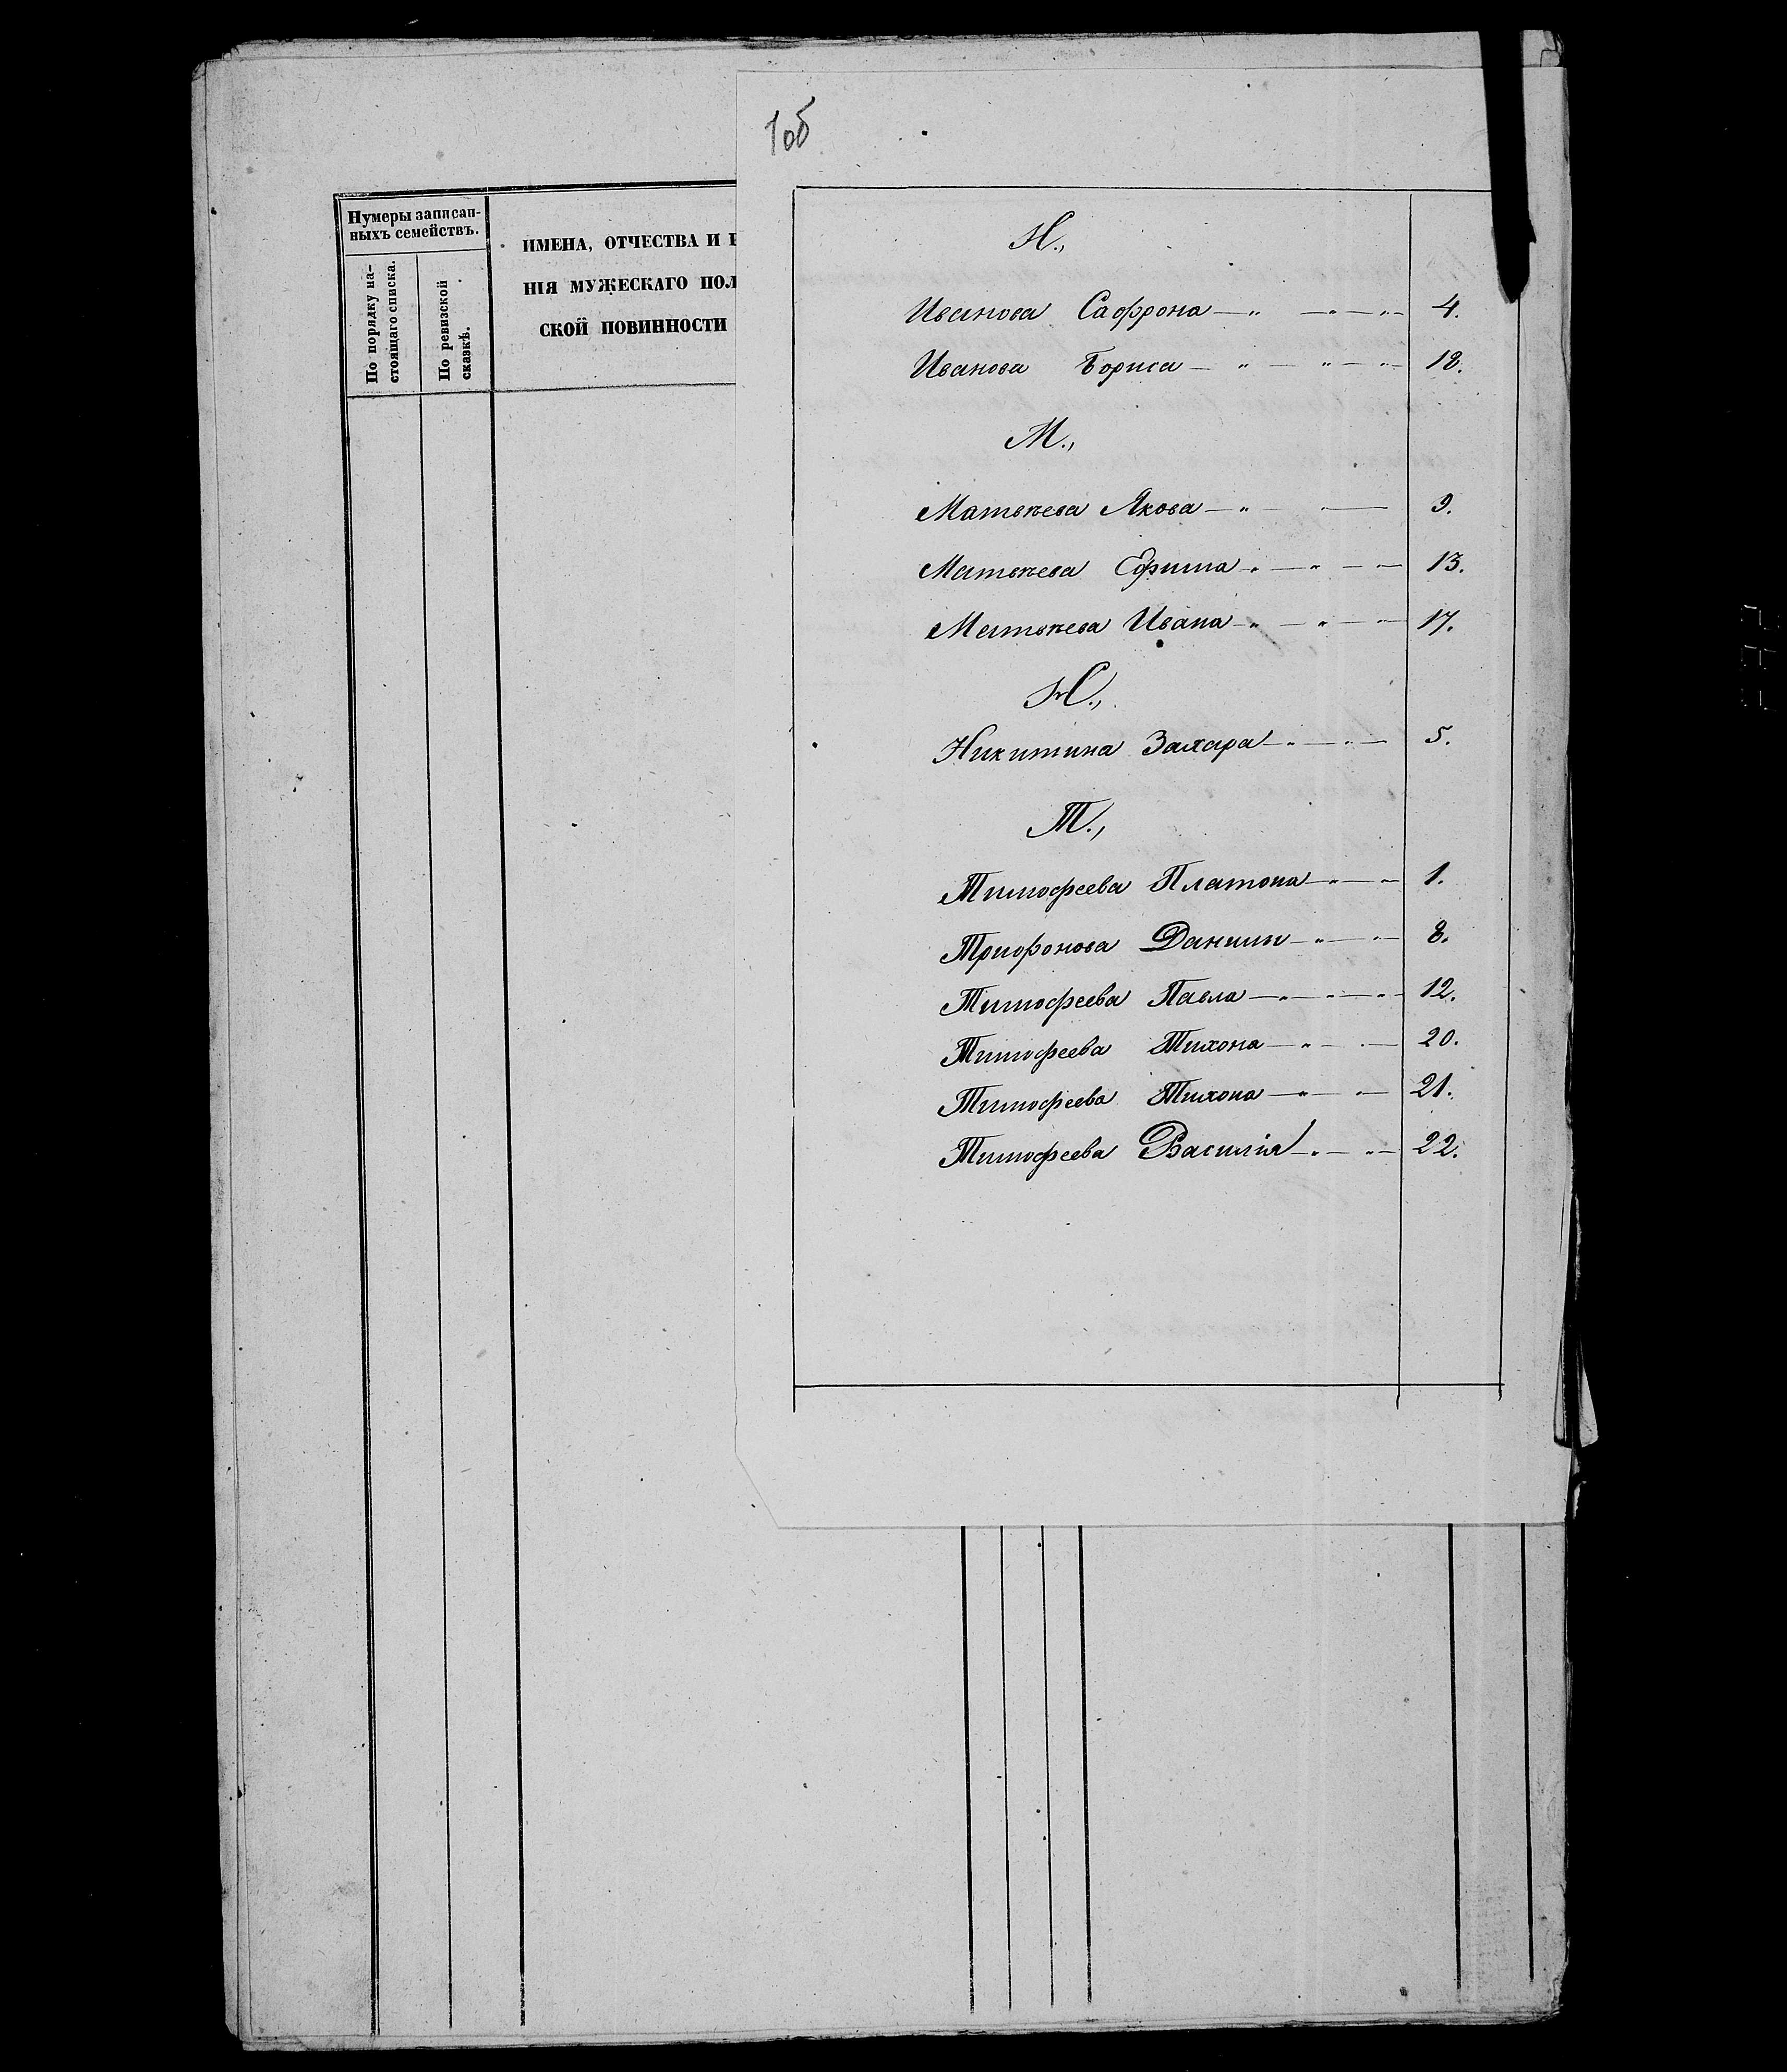 1об
Нумеры записан-
ныхъ семействъ.
По порядку на-
стоящаго списка.
По ревизской
сказкѣ.
ИМЕНА, ОТЧЕСТВА И
НІЯ МУЖЕСКАГО ПОЛ
СКОЙ ПОВИННОСТИ
И.,
Иванова Сафрона — „ — „ — „ — 4.
Иванова Бориса — „ — „ — „ — 18.
М.,
Матвѣева Якова — „ — „ — 9.
Матвѣева Ефима „ — „ — „ — 13.
Матвѣева Ивана — „ — „ — „ — 17.
Н.,
Никитина Захара — „ — „ — 5.
Т.,
Тимофеева Платона — „ — „ — 1.
Трифонова Данилы — „ — „ — 8.
Тимофеева Павла — „ — „ — „ — 12.
Тимофеева Тихона — „ — „ — 20.
Тимофеева Тихона — „ — „ — 21.
Тимофеева Василія — „ — „ — 22.